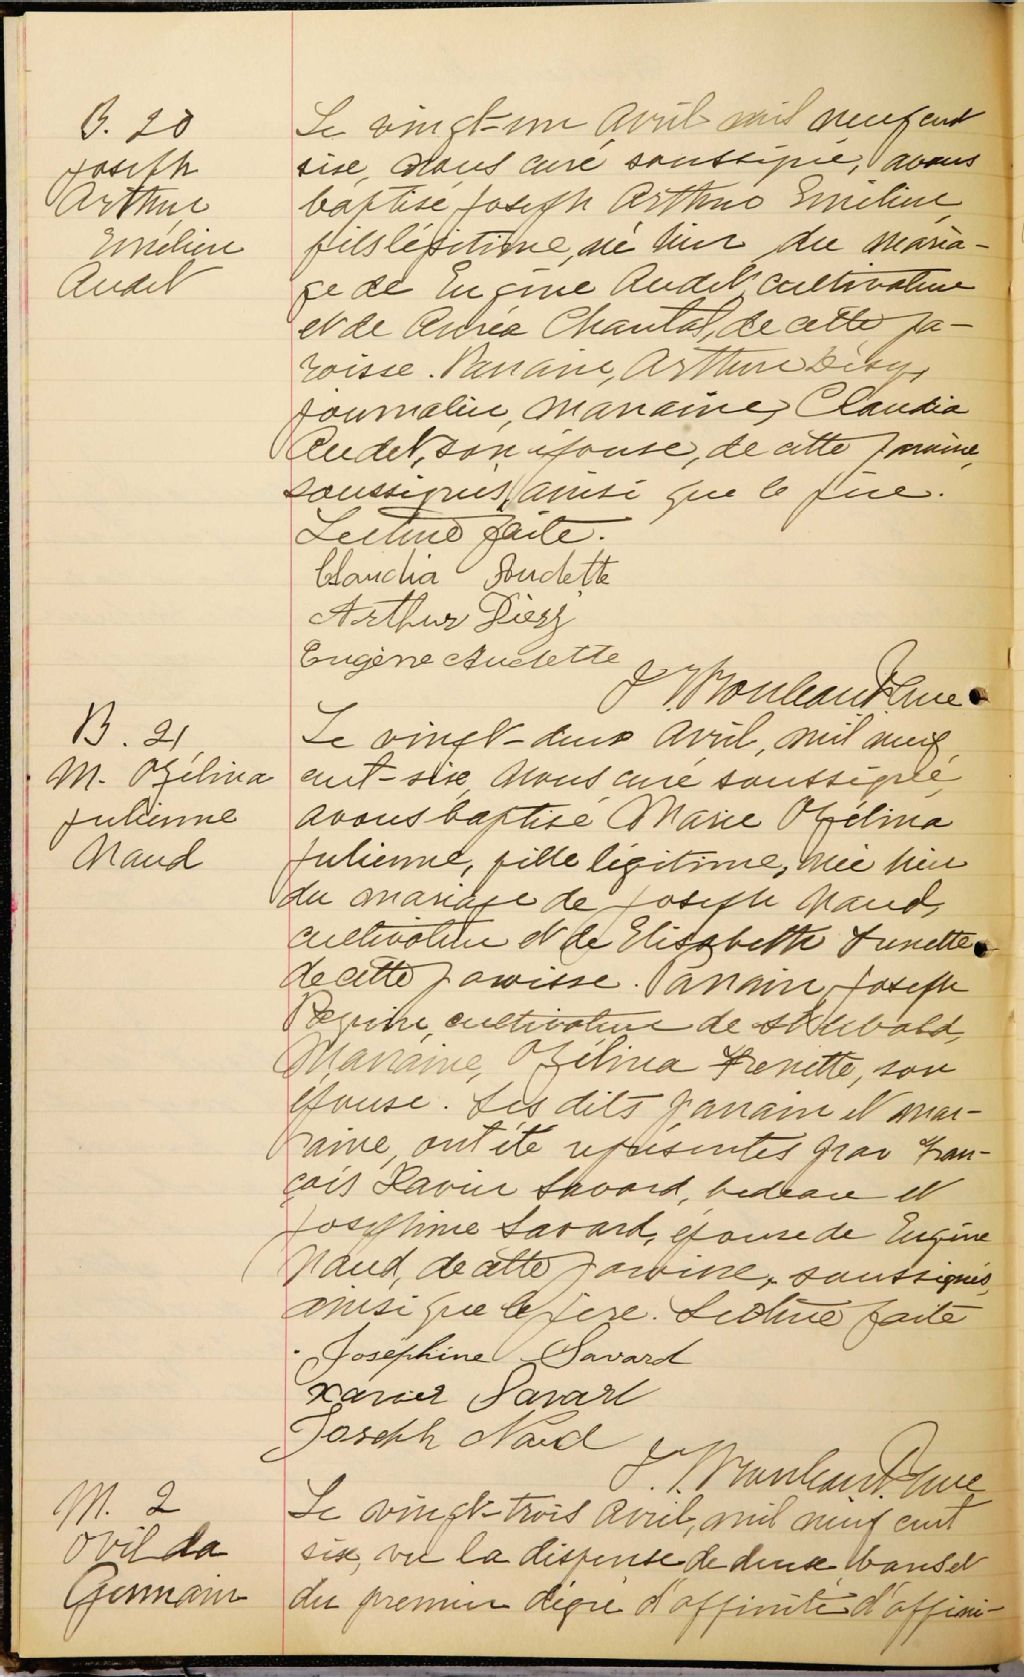 B. 20
Joseph
Arthur
Emélien
Audet
Le vingt-un Avril mil neuf cent
six, Nous curé soussigné, avons
baptisé Joseph Arthur Emélien,
fils légitime, né hier du maria-
ge de Eugène Audet, cultivateur
et de Auréa Chantal, de cette pa-
roisse. Parrain, Arthur Désy,
journalier, Marraine, Claudia
Audet, son épouse, de cette paroisse,
soussignés, ainsi que le père.
Lecture faite.
Claudia Audette
Arthur
Eugène Audette
Ptre curé
B. 21
M. Ozélina
Julienne
Naud
Le vingt-deux Avril, mil neuf
cent-six, Nous curé soussigné,
avons baptisé Marie Ozélina
Julienne, fille légitime, née hier
du mariage de Joseph Naud,
cultivateur et de Elisabeth Frenette
de cette paroisse. Parrain, Joseph
cultivateur de St Ubald,
Marraine, Ozélina Frenette, son
épouse. Les dits parrain et mar-
raine, ont été représentés par Fran-
çois Xavier Savard, bedeau et
Joséphine Savard, épouse de Eugène
Naud, de cette paroisse, soussignés,
ainsi que le père. Lecture faite
Joséphine Savard
Xavier Savard
Joseph Naud
Ptre curé
M. 2
Ovilda
Germain
Le vingt-trois Avril, mil neuf cent
six, vu la dispense de deux bans et
du premier degré d'affinité d'affini-